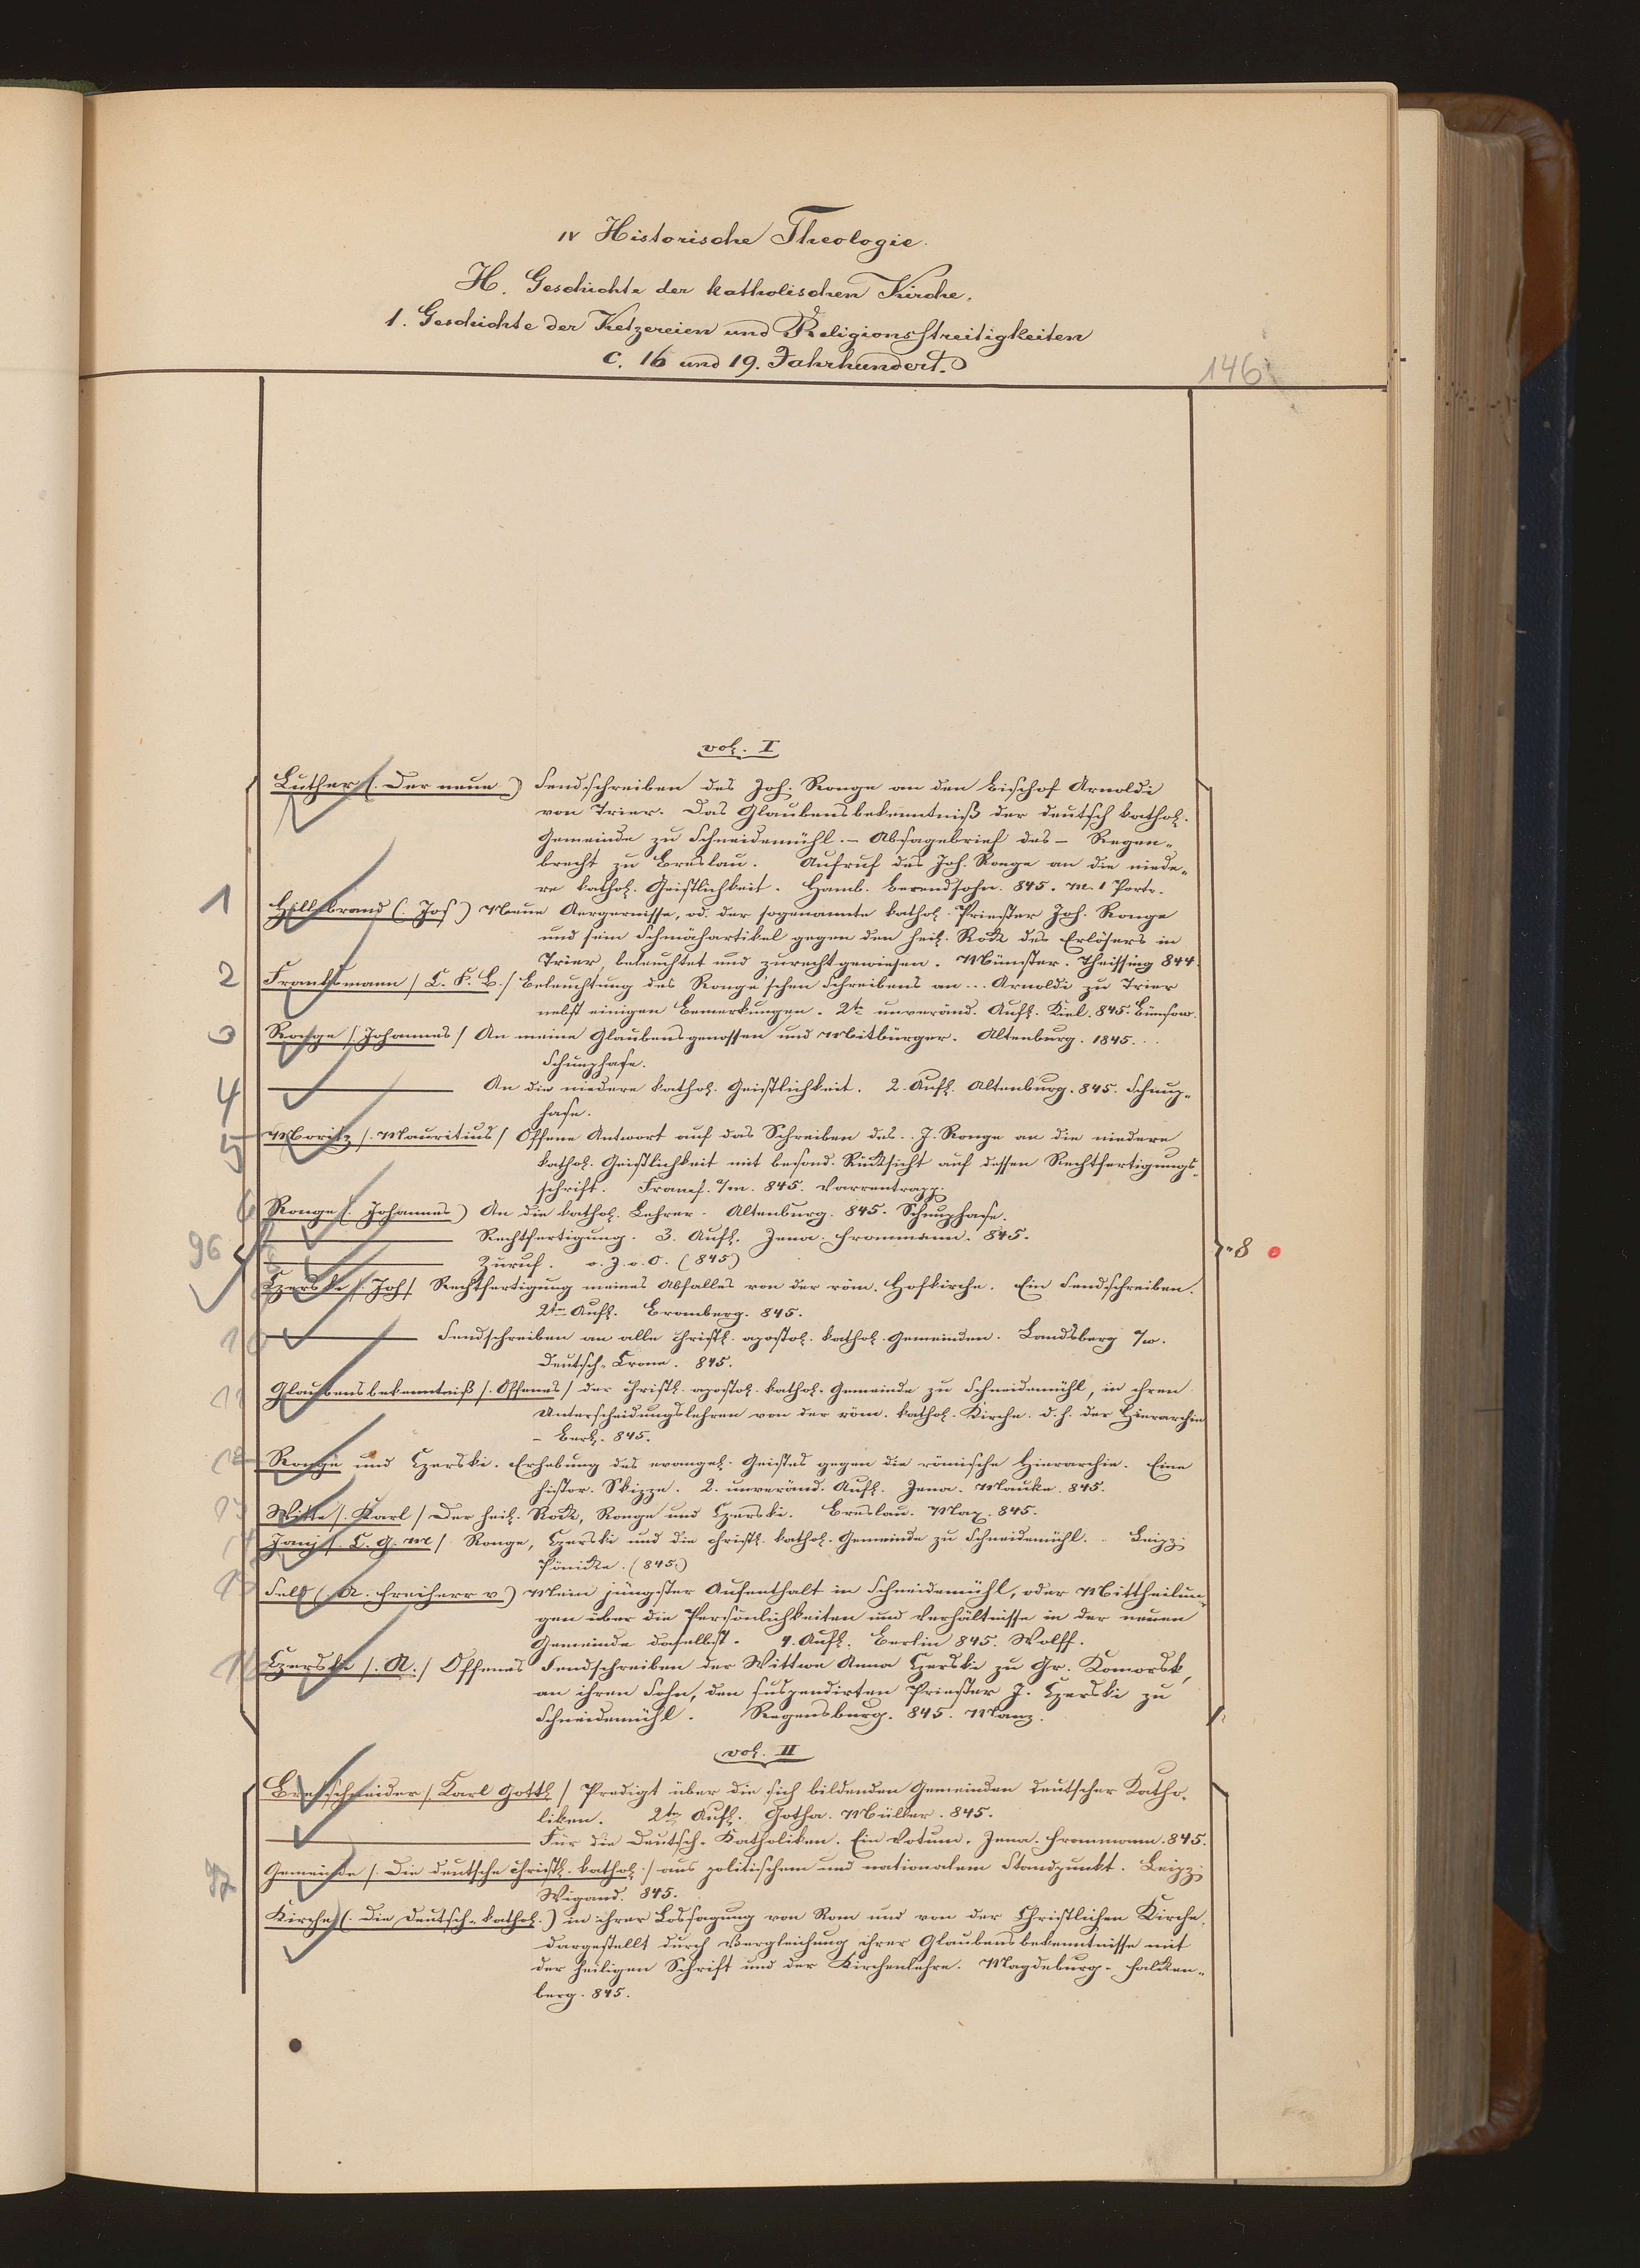 IV Historische Theologie.
H. Geschichte der katholischen Kirche.
1. Geschichte der Ketzereien und Religionsstreitigkeiten
c. 16 und 19. Jahrhundert.
146
vol. I
Luther (. Der neue.) Sendschreiben des Joh. Ronge an den Bischof Arnoldi
von Trier. Das Glaubensbekenntniß der deutsch kathol.
Gemeinde zu Schneidemühl. – Absagebrief des – Regen-
brecht zu Breslau. Aufruf des Joh. Ronge an die niede-
re kathol. Geistlichkeit. Hamb. Berendsohn. 845. M. 1 Portr.
1 Hillebrand (. Jos.) Neue Aergernisse, od. der sogenannte kathol. Priester Joh. Ronge
und sein Schmähartikel gegen den heil. Rock des Erlösers in
Trier, beleuchtet und zurechtgewiesen. Münster. Theissing 844.
2 Frantsmann /. C. F. B./ Beleuchtung des Ronge'schen Schreibens an ... Arnoldi zu Trier
nebst einigen Bemerkungen. 2te unveränd. Aufl. Kiel. 845. Bünsow.
3 Ronge /. Johannes / An meine Glaubensgenossen und Mitbürger. Altenburg. 1845.
Schnuphase.
4 An die niedere kathol. Geistlichkeit. 2. Aufl. Altenburg. 845. Schnup-
hase.
5 Moritz /. Mauritius / Offene Antwort auf das Schreiben des .. J. Ronge an die niedere
kathol. Geistlichkeit mit besond. Rücksicht auf dessen Rechtfertigungs-
schrift. Francf. a/m. 845. Varrentrapp.
6 Ronge (. Johannes) An die kathol. Lehrer. Altenburg. 845. Schnuphase.
Rechtfertigung. 3. Aufl. Jena. Frommann. 845.
96 Zuruf. o. J. o. O. (845) 8
Czerski /. Joh / Rechtfertigung meines Abfalles von der röm. Hofkirche. Ein Sendschreiben.
2te Aufl. Bromberg. 845.
10 Sendschreiben an alle christl. apostol. kathol. Gemeinden. Landsberg a/w.
Deutsch-Crone. 845.
11 Glaubensbekenntniß /. Offenes / der christl. apostol. kathol. Gemeinde zu Schneidemühl, in ihren
Unterscheidungslehren von der röm. kathol. Kirche. d. h. der Hierarchie
– Berl. 845.
12 Ronge und Czerski. Erhebung des evangel. Geistes gegen die römische Hierarchie. Eine
histor. Skizze. 2. unveränd. Aufl. Jena. Mauke. 845.
13 Witte /. Karl / Der heil. Rock, Ronge und Czerski. Breslau. Max. 845.
14 Janj /. C. G. M / Ronge, Czerski und die christl. kathol. Gemeinde zu Schneidemühl. .. Leipz.
Pönicke. (845.)
15 Seld (. A. Freiherr v.) Mein jüngster Aufenthalt in Schneidemühl, oder Mittheilun-
gen über die Persönlichkeiten und Verhältnisse in der neuen
Gemeinde daselbst. 4. Aufl. Berlin 845. Wolff.
16 Czerski /. A. / Offenes Sendschreiben der Wittwe Anna Czerski zu Gr. Komorsk,
an ihren Sohn, den suspendirten Priester J. Czerski zu
Schneidemühl. Regensburg. 845. Manz.
vol. II
Bretschneider / Karl Gottl / Predigt über die sich bildenden Gemeinden deutscher Katho-
liken. 2te Aufl. Gotha. Müller. 845.
Für die Deutsch-Katholiken. Ein Votum. Jena. Frommann. 845.
97 Gemeinde /. Die deutsche christl. kathol. / aus politischem und nationalem Standpunkt. Leipz.
Wigand. 845.
Kirche (. Die deutsch-kathol.) in ihrer Lossagung von Rom und von der Christlichen Kirche,
dargestellt durch Vergleichung ihrer Glaubensbekenntnisse mit
der heiligen Schrift und der Kirchenlehre. Magdeburg. Falcken-
berg. 845.